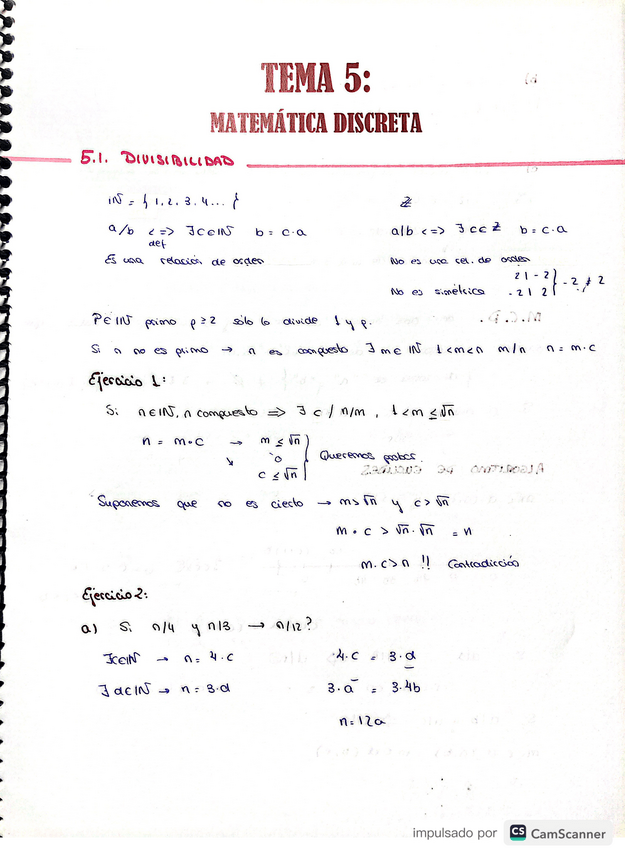 TEMA 5:
MATEMÁTICA DISCRETA
5.1. DIVISIBILIDAD
ℕ = { 1, 2, 3, 4... }
ℤ
a/b <=> ∃c∈ℕ b = c·a
def
a/b <=> ∃ c∈ℤ b = c·a
Es una relación de orden
No es una rel. de orden
No es simétrica
2 | -2
-2 | 2 } -2 ≠ 2
P∈ℕ primo p≥2 sólo lo divide 1 y p.
Si n no es primo → n es compuesto ∃ m∈ℕ 1<m<n m/n n = m·c
Ejercicio 1:
Si n∈ℕ, n compuesto => ∃ c / n/m, 1<m≤√n
n = m·c → m ≤ √n
↘ o
c ≤ √n } Queremos probar.
ALGORITMO DE EUCLIDES
Suponemos que no es cierto → m>√n y c>√n
m · c > √n·√n = n
m·c>n !! Contradicción
Ejercicio 2:
a) Si n/4 y n/3 → n/12?
∃c∈ℕ → n = 4·c
4·c = 3·d
∃ d∈ℕ → n = 3·d
3·a = 3·4b
n=12a
impulsado por CS CamScanner